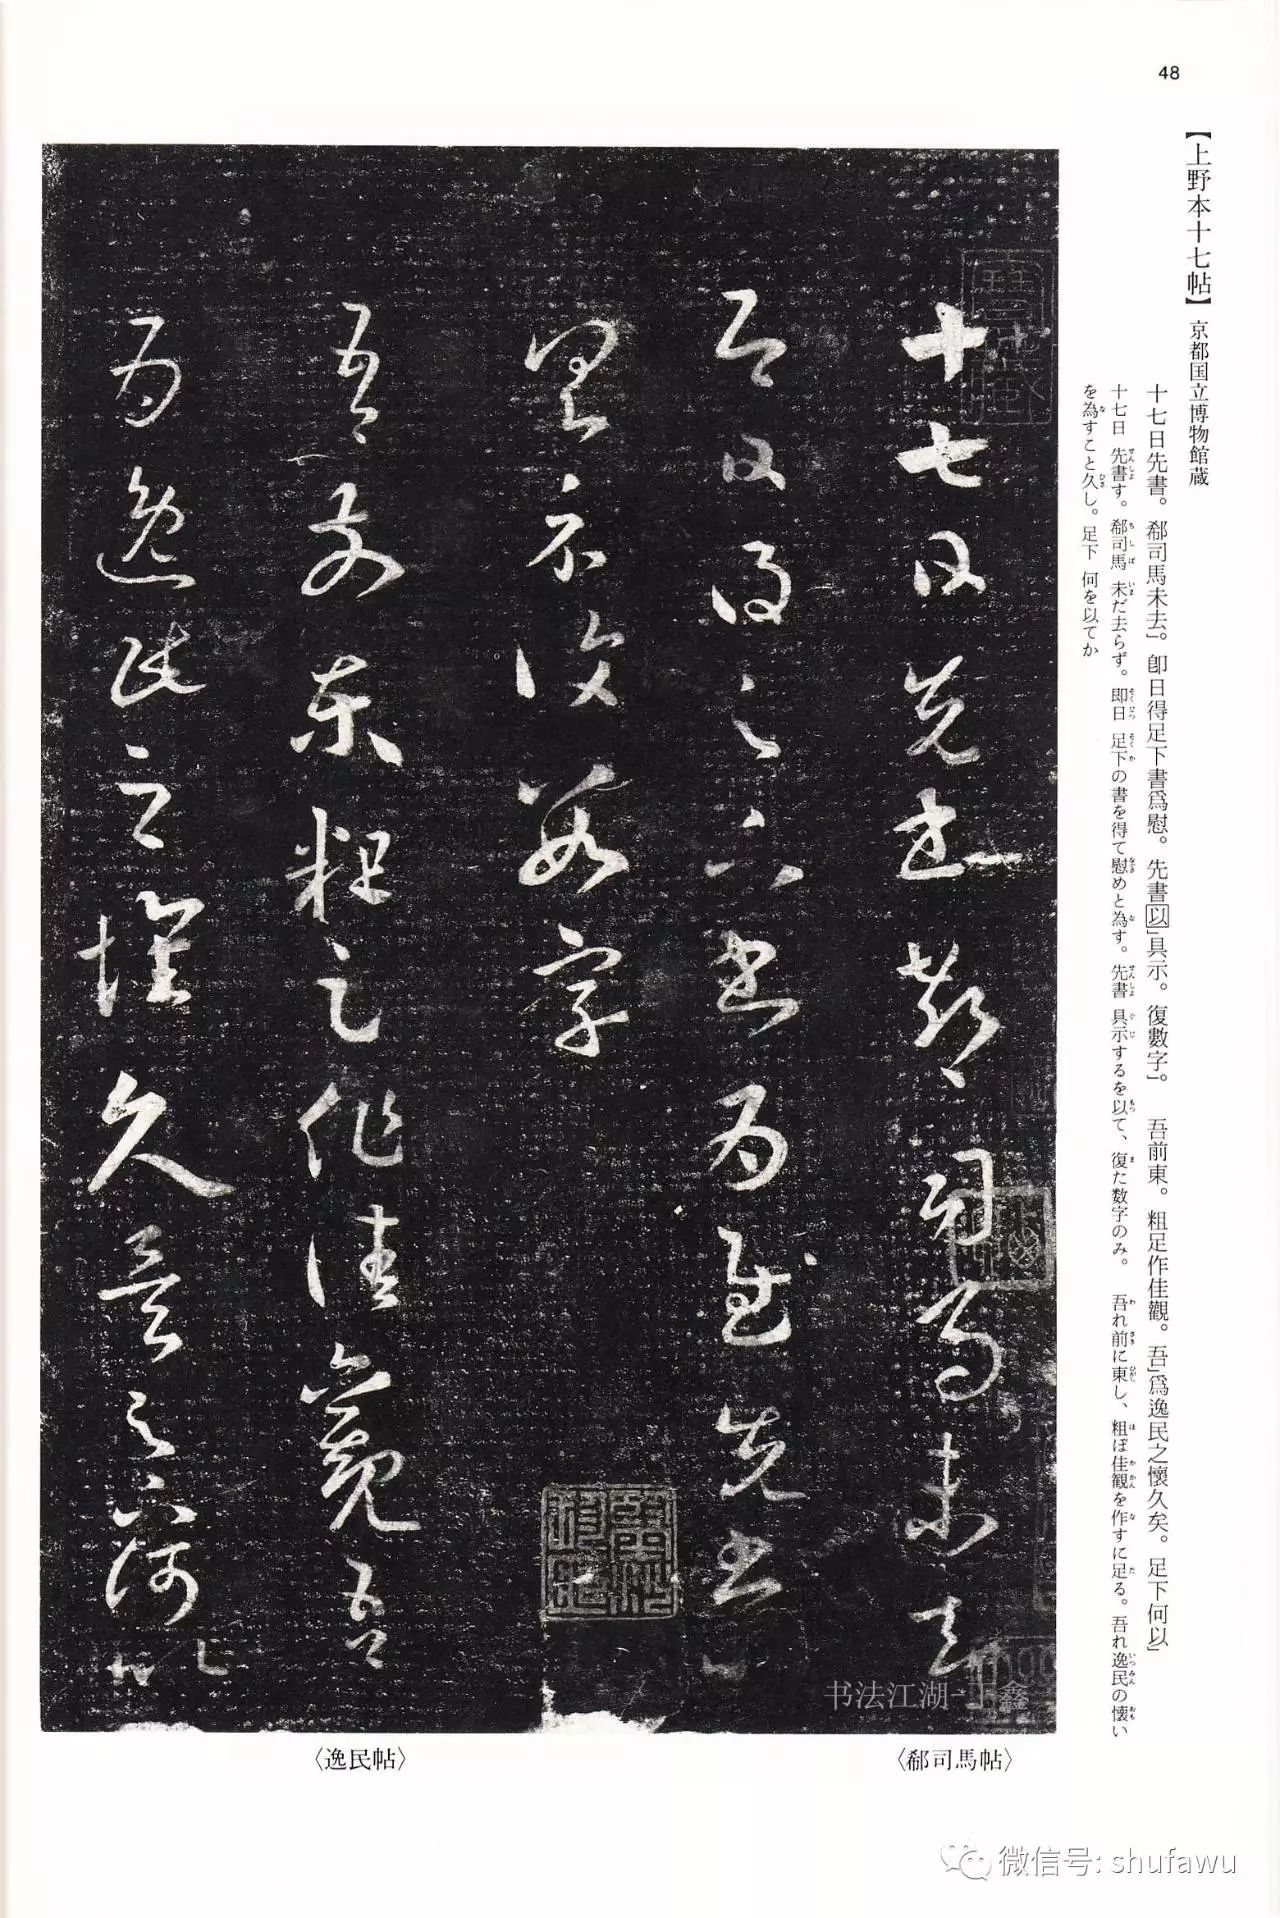 48
【上野本十七帖】 京都国立博物館蔵
十七日先書。郗司馬未去」。卽日得足下書爲慰。先書以」具示。復數字」。 吾前東。粗足作佳觀。吾」爲逸民之懷久矣。足下何以」
十七日 先書す。郗司馬 未だ去らず。即日 足下の書を得て慰めと為す。先書 具示するを以て、復た数字のみ。 吾れ前に東し、粗ぼ佳観を作すに足る。吾れ逸民の懐い
を為すこと久し。足下 何を以てか
十七日先書郗司馬未去
即日得足下書為慰先書以
具示復數字
吾前東粗足作佳觀吾
為逸民之懷久矣足下何以
七
〈郗司馬帖〉
〈逸民帖〉
书法江湖-丁鑫
微信号: shufawu